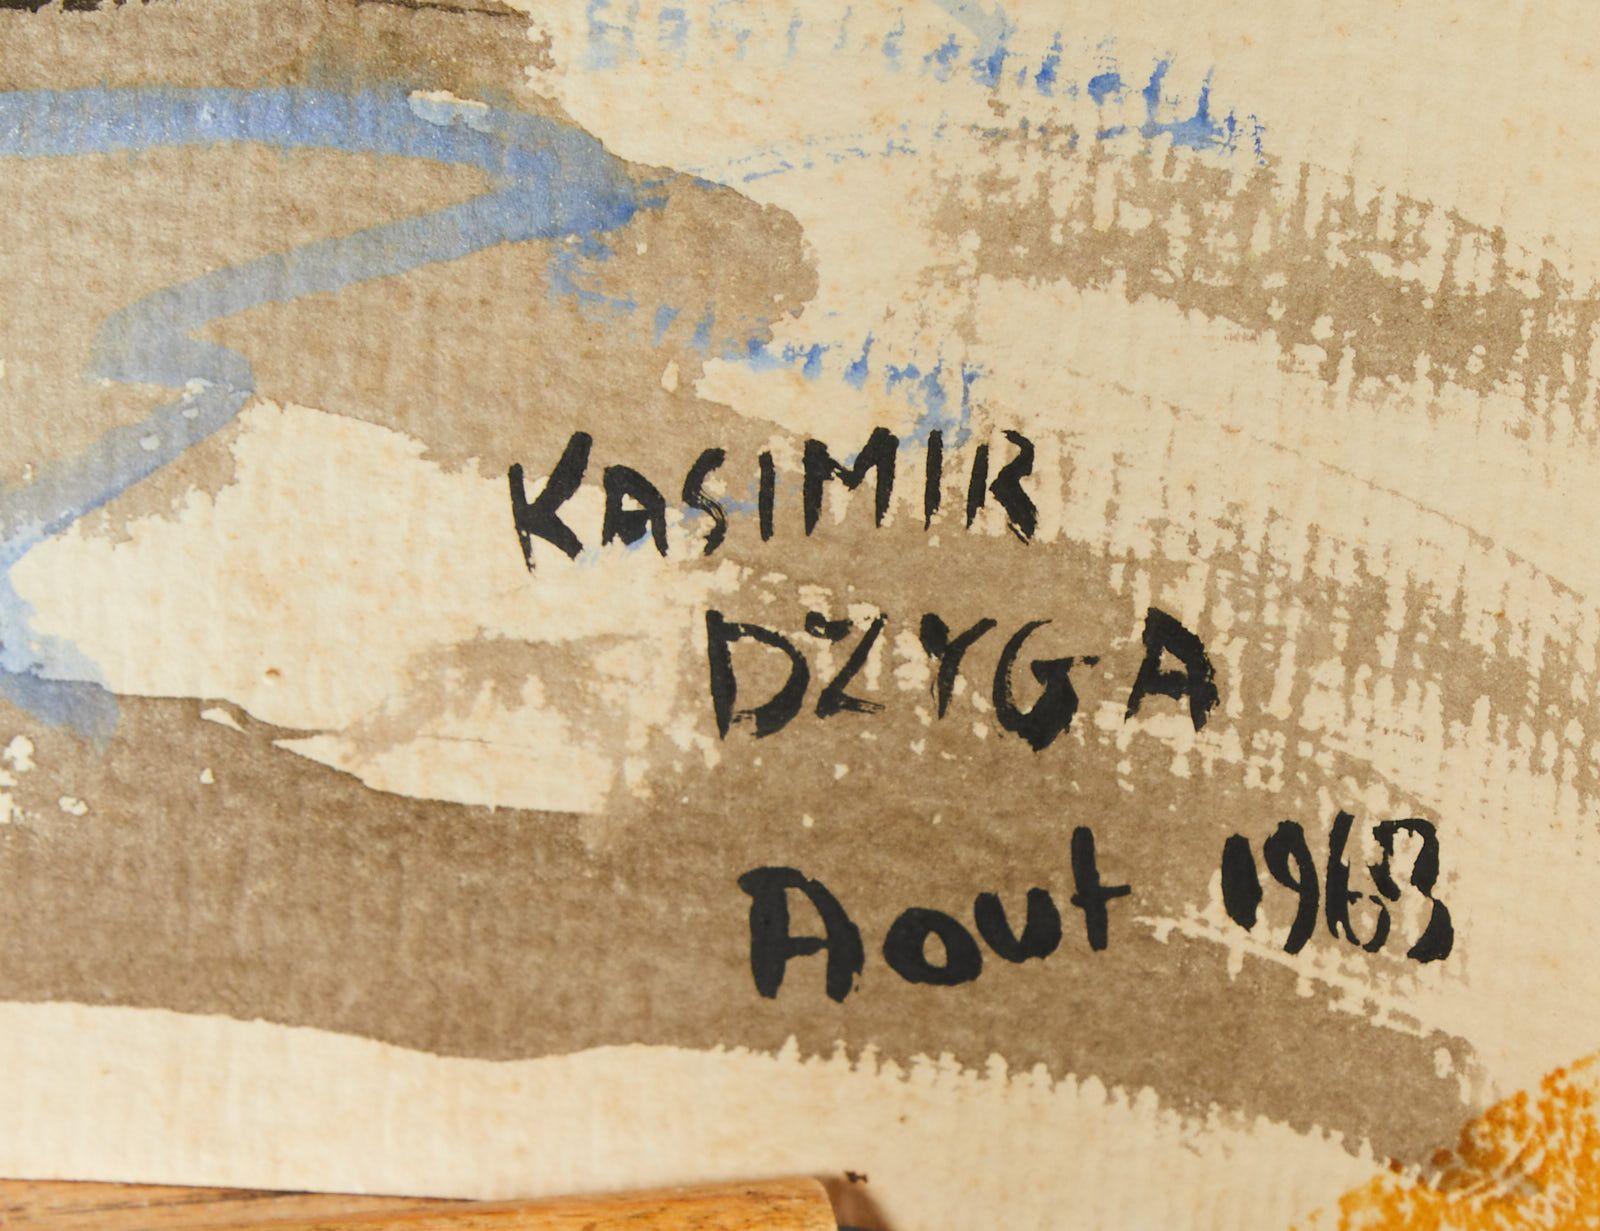 KASIMIR
DZYGA
Aout 1963